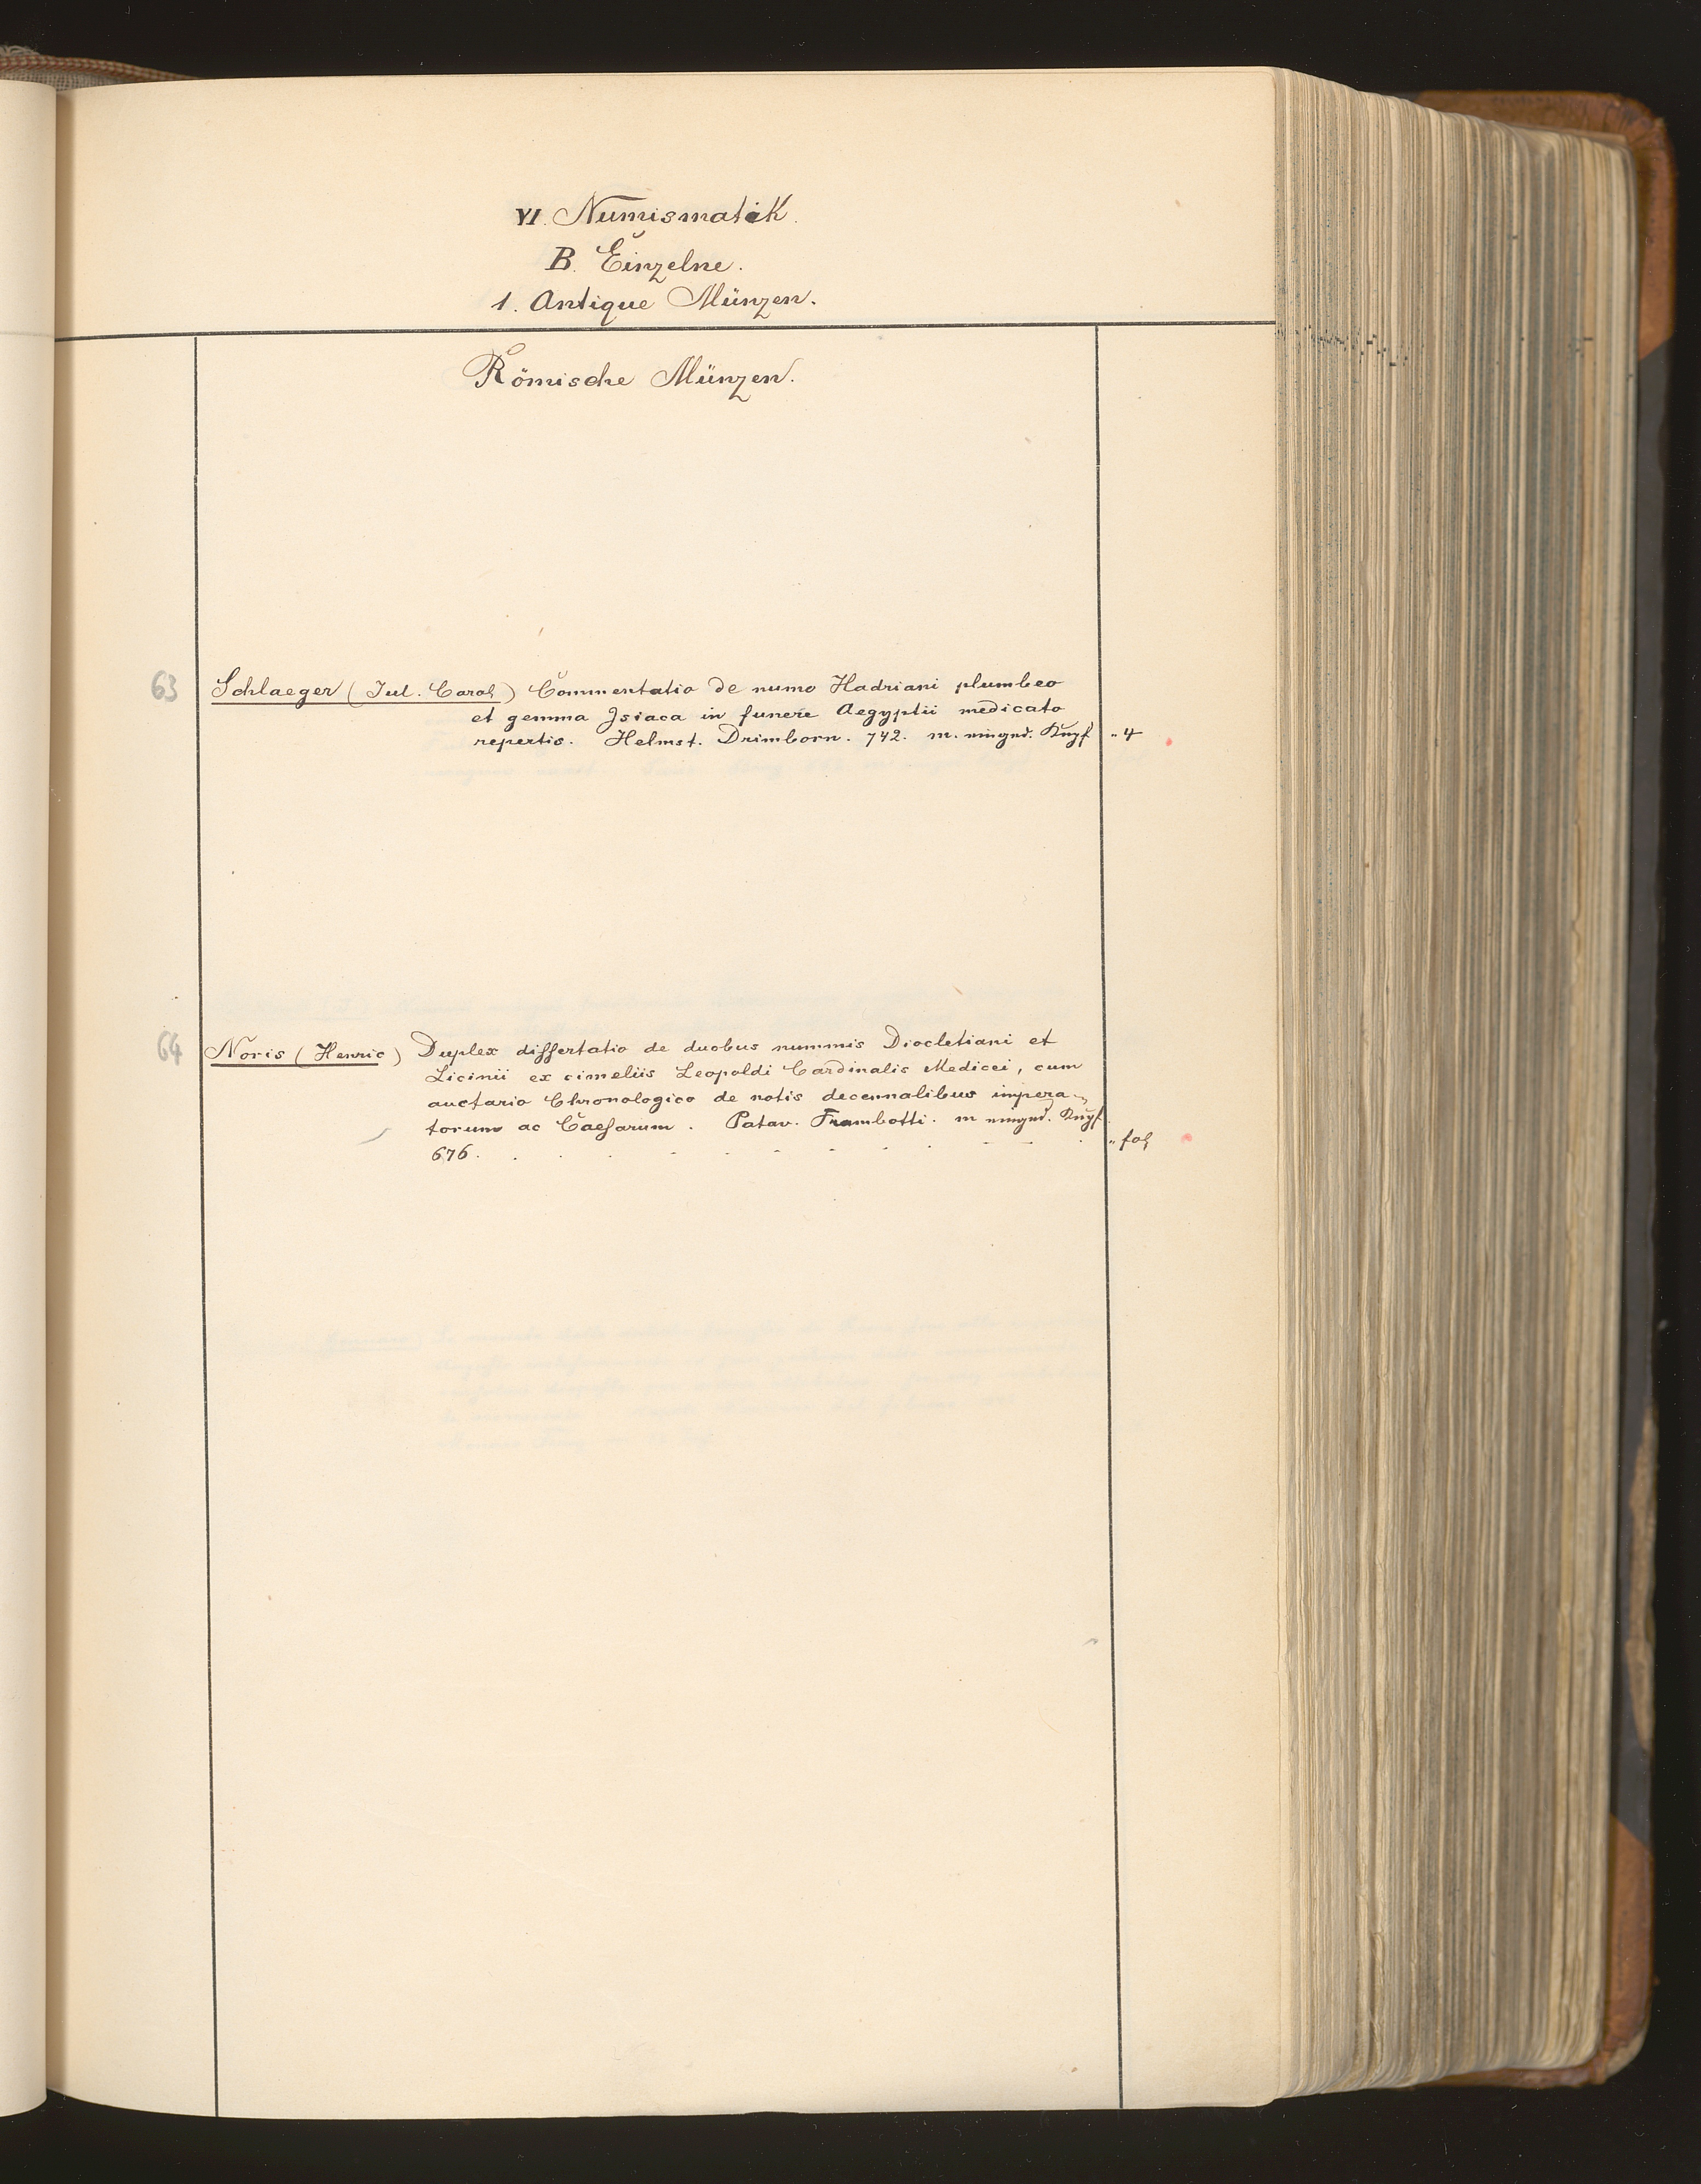 VI. Numismatik.
B. Einzelne.
1. Antique Münzen.
Römische Münzen.
63 Schlaeger (Jul. Carol) Commentatio de numo Hadriani plumbeo
et gemma Isiaca in funere Aegyptii medicato
repertis. Helmst. Drimborn. 742. m. eingnd. Kupf. „ 4
64 Noris (Henric) Duplex dissertatio de duobus nummis Diocletiani et
Licinii ex cimeliis Leopoldi Cardinalis Medicei, cum
auctario Chronologico de notis decennalibus impera-
torum ac Caesarum. Patav. Frambotti. m eingnd. Kupf.
676. . . . . . . . . . . . „ fol